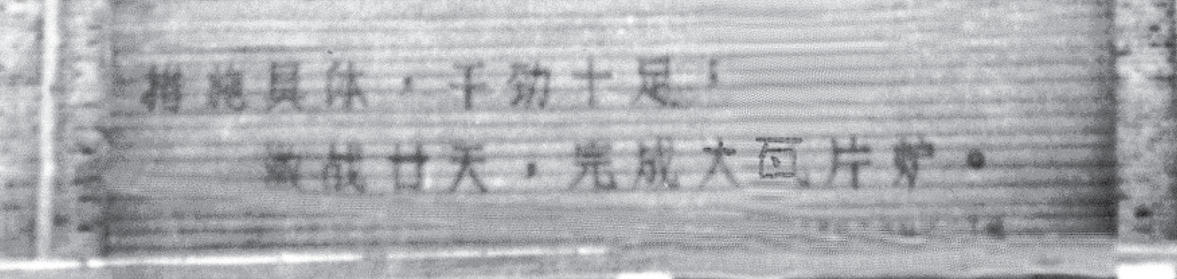 措施具体，干劲十足，
激战廿天，完成大瓦片炉。